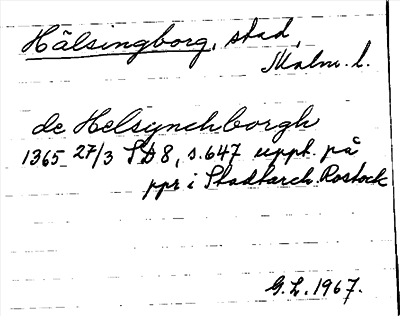 Hälsingborg, stad,
Malm. l.
de Helsynchborgh
1365 27/3 SD 8, s. 647 uppt. på
ppr i Stadtarch. Rostock
G. L. 1967.